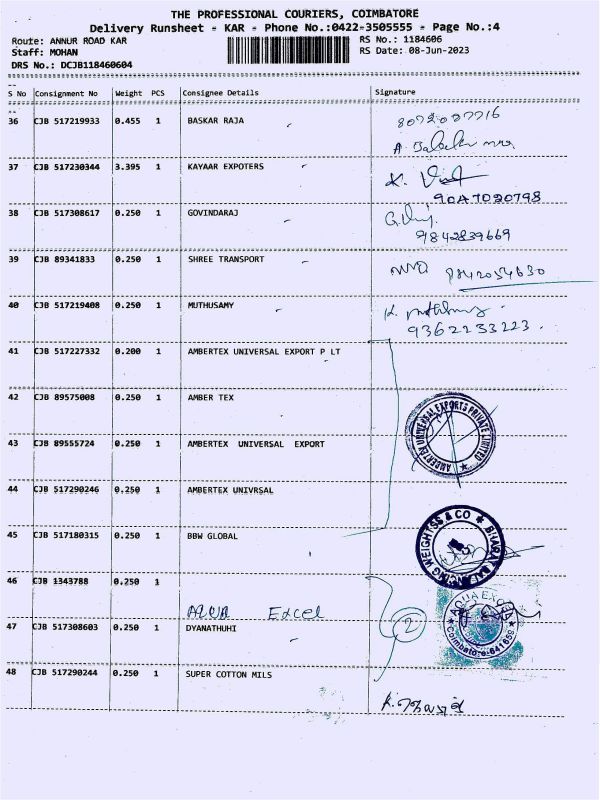 THE PROFESSIONAL COURIERS, COIMBATORE
Delivery Runsheet - KAR - Phone No.:0422-3505555 - Page No.:4
Route: ANNUR ROAD KAR
RS No.: 1184606
Staff: MOHAN
RS Date: 08-Jun-2023
DRS No.: DCJB118460604
S No Consignment No Weight PCS Consignee Details Signature
36 CJB 517219933 0.455 1 BASKAR RAJA
37 CJB 517230344 3.395 1 KAYAAR EXPOTERS
38 CJB 517308617 0.250 1 GOVINDARAJ
9842839669
39 CJB 89341833 0.250 1 SHREE TRANSPORT
9842054630
40 CJB 517219408 0.250 1 MUTHUSAMY
9362233223
41 CJB 517227332 0.200 1 AMBERTEX UNIVERSAL EXPORT P LT
42 CJB 89575008 0.250 1 AMBER TEX
AMBERTEX UNIVERSAL EXPORTS PRIVATE LIMITED
43 CJB 89555724 0.250 1 AMBERTEX UNIVERSAL EXPORT
44 CJB 517290246 0.250 1 AMBERTEX UNIVRSAL
45 CJB 517180315 0.250 1 BBW GLOBAL
BHARAT BALANCING WEIGHTSS & CO
46 CJB 1343788 0.250 1
AQUA Excel
2
AQUA EXCEL
Coimbatore-641659
47 CJB 517308603 0.250 1 DYANATHUHI
48 CJB 517290244 0.250 1 SUPER COTTON MILS